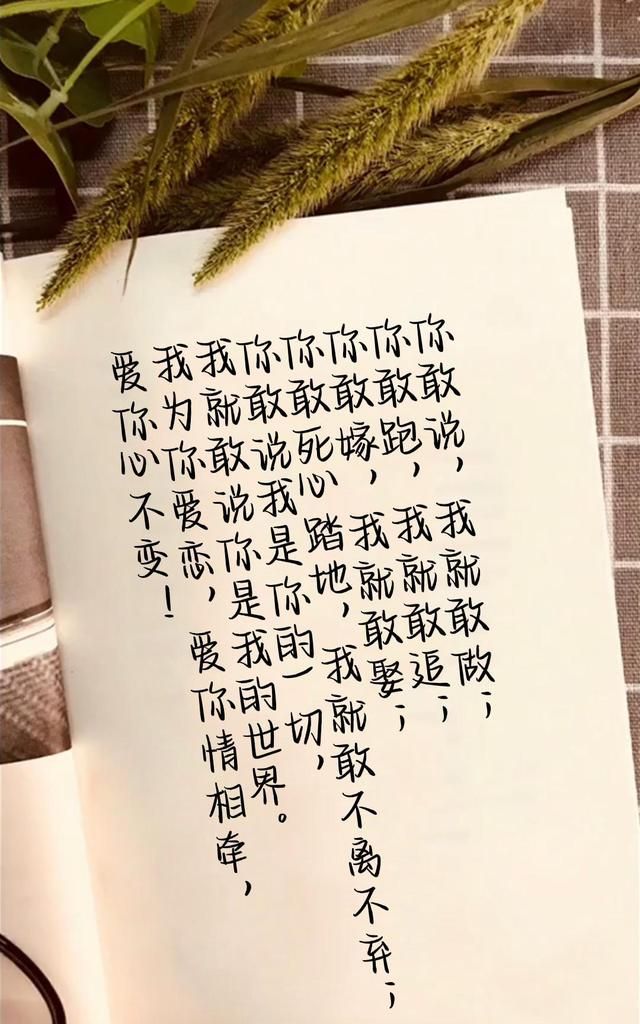 你敢说，我就敢做；
你敢跑，我就敢追；
你敢嫁，我就敢娶；
你敢死心踏地，我就敢不离不弃；
你敢说我是你的一切，
我就敢说你是我的世界。
我为你爱恋，爱你情相牵，
爱你心不变！